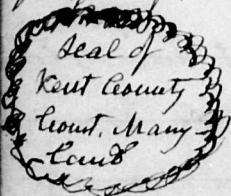 Seal of
Kent County
Court, Mary
Land